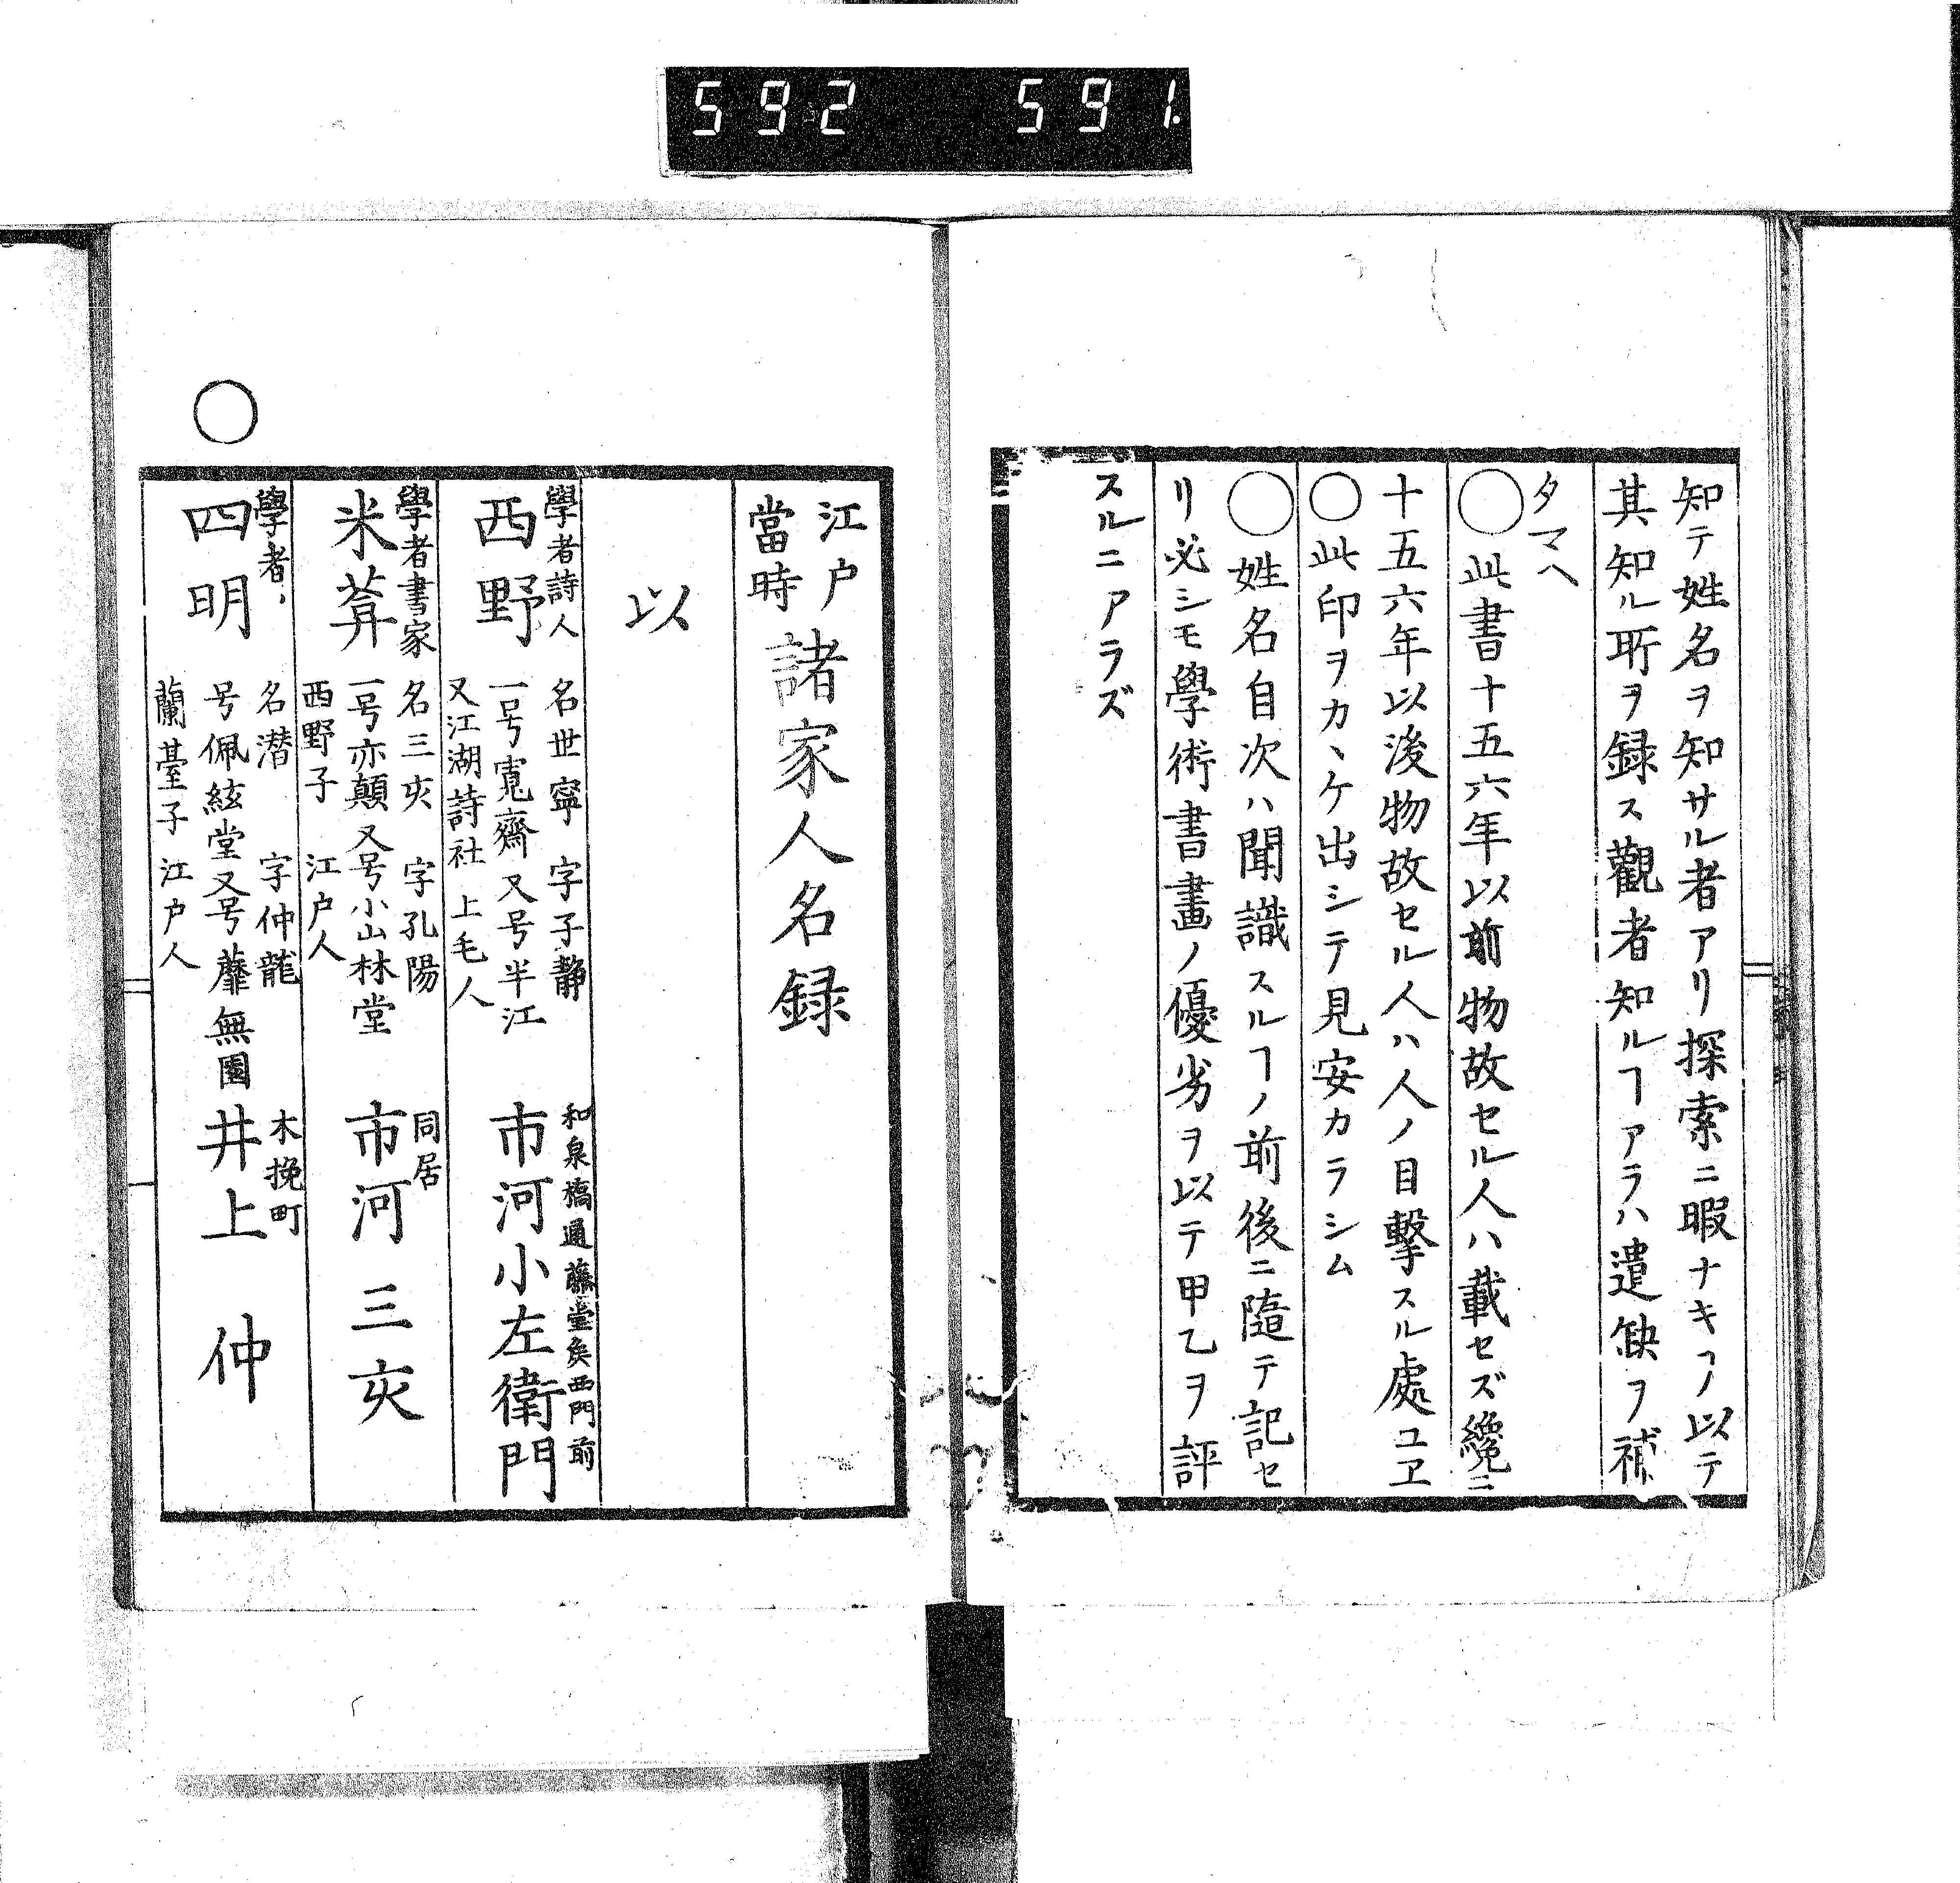 592 591
知テ姓名ヲ知サル者アリ探索ニ暇ナキヿ以テ
其知ル所ヲ録ス觀者知ルヿアラハ遺缺ヲ補
タマヘ
○此書十五六年以前物故セル人ハ載セズ纔ニ
十五六年以後物故セル人ハ人ノ目撃スル處ユヱ
○此印ヲカヽケ出シテ見安カラシム
○姓名自次ハ聞識スルヿノ前後ニ隨テ記セ
リ必シモ學術書畫ノ優劣ヲ以テ甲乙ヲ評
スルニアラズ
江戸
當時
諸家人名録
以
學者詩人
西野
名世寧 字子静
一号寛齋又号半江
又江湖詩社 上毛人
和泉橋通藤堂矦西門前
市河小左衛門
學者書家
米葊
名三亥 字孔陽
一号亦顛又号小山林堂
西野子 江戸人
同居
市河三亥
○
學者、
四明
名潜 字仲龍
号佩絃堂又号蘼無園
蘭臺子 江戸人
木挽町
井上仲